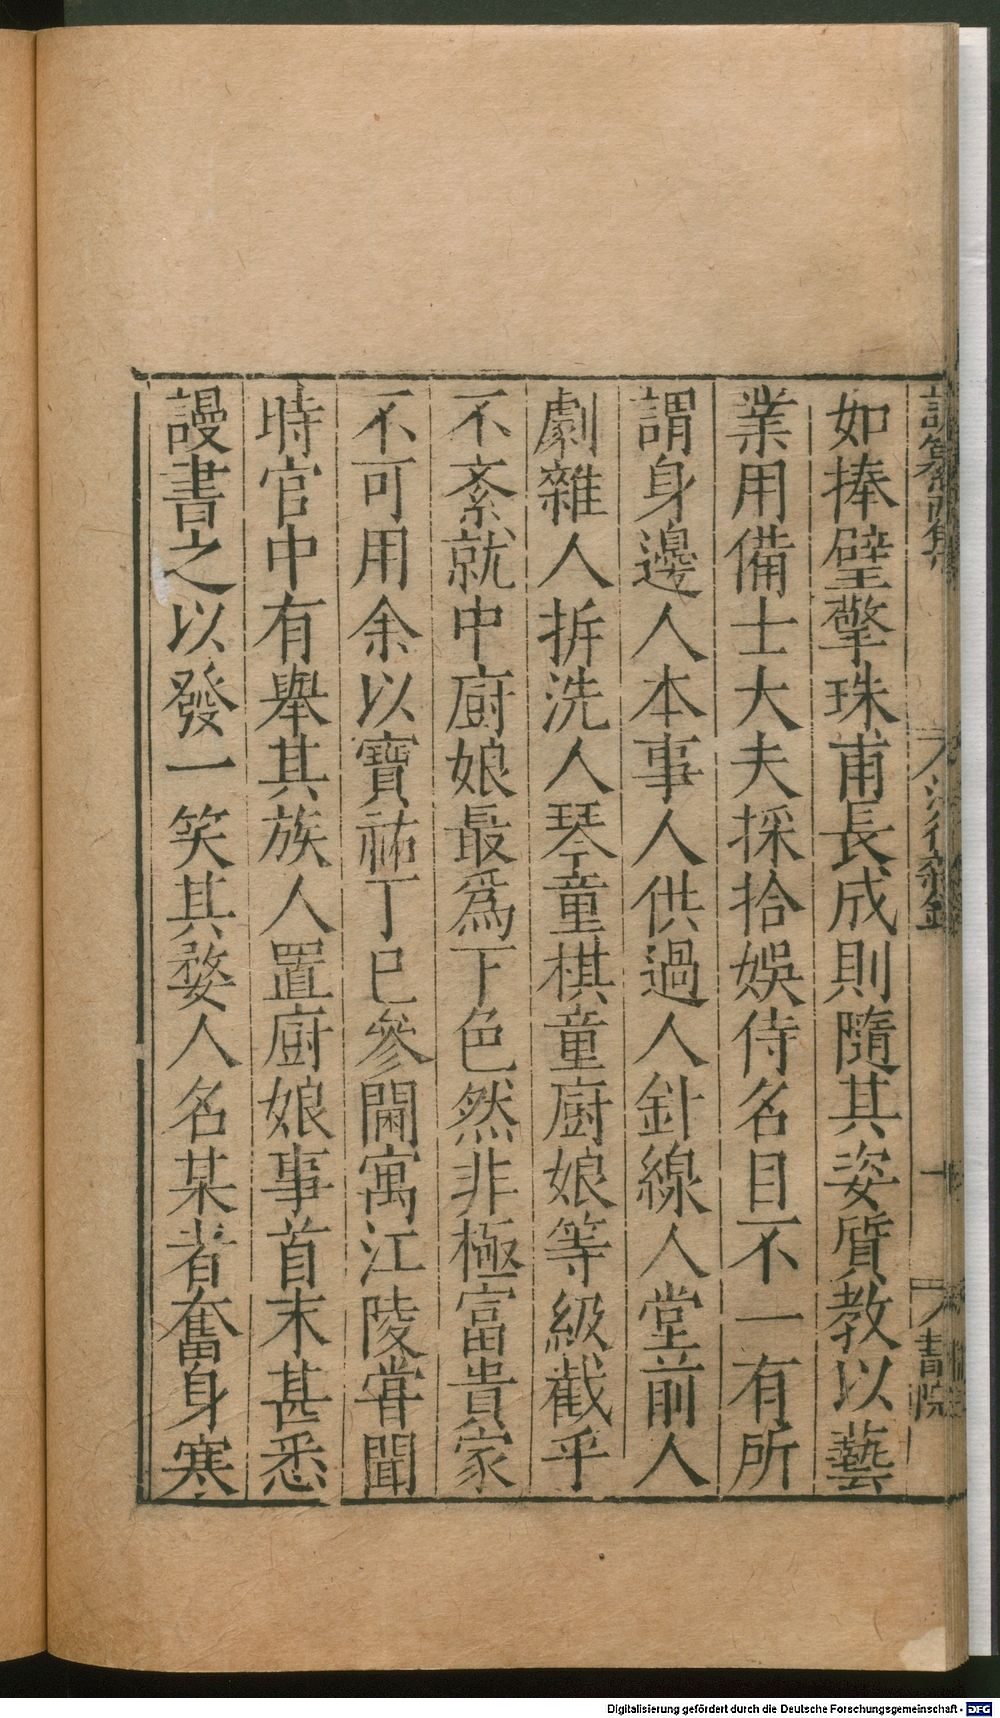 如捧璧擎珠甫長成則隨其姿質教以藝
業用備士大夫採拾娛侍名目不一有所
謂身邊人本事人供過人針線人堂前人
劇雜人拆洗人琴童棋童廚娘等級截乎
不紊就中廚娘最爲下色然非極富貴家
不可用余以寶祐丁巳參閫寓江陵嘗聞
時官中有舉其族人置廚娘事首末甚悉
謾書之以發一笑其婺人名某者奮身寒
Digitalisierung gefördert durch die Deutsche Forschungsgemeinschaft - DFG